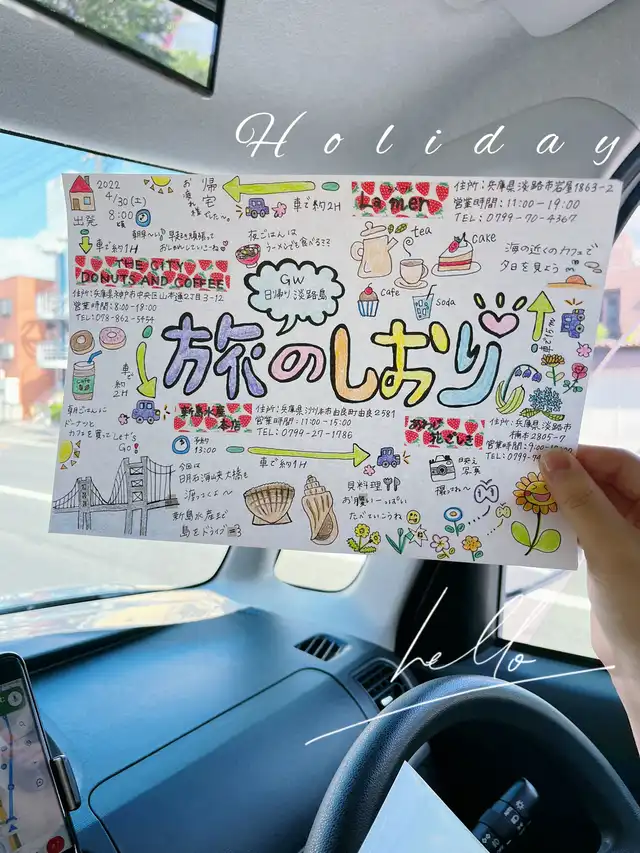 Holiday
2022
4/30(土)
8:00頃
出発
早起き頑張って
車で約1H
THE CITY
DONUTS AND COFFEE
住所:兵庫県神戸市中央区山本通2丁目3-12
営業時間:8:00-18:00
TEL:078-862-5454
朝ごはんに
ドーナツと
カフェを買って Let's
Go!
車で
約
2H
今回は
明石海峡大橋も
渡ってくよ〜
新島水産まで
島をドライブ
新島水産
本店
住所:兵庫県洲本市由良町由良2581
営業時間:11:00-15:00
TEL:0799-27-1786
予約
13:00
車で約1H
貝料理
お腹いーっぱい
たべよいこうね
あわじ
花さじき
住所:兵庫県淡路市
楠本2805-7
営業時間:9:00-
TEL:0799-74
映え
写真
撮ってね〜
車で15m
La mer
住所:兵庫県淡路市岩屋1863-2
営業時間:11:00-19:00
TEL:0799-70-4367
tea
cake
cafe
soda
海の近くのカフェで
夕日を見よう
車で約2H
夜ごはんは
ラーメンでも食べる??
帰宅
お疲れ様でした〜
GW
日帰り:淡路島
旅のしおり
hello